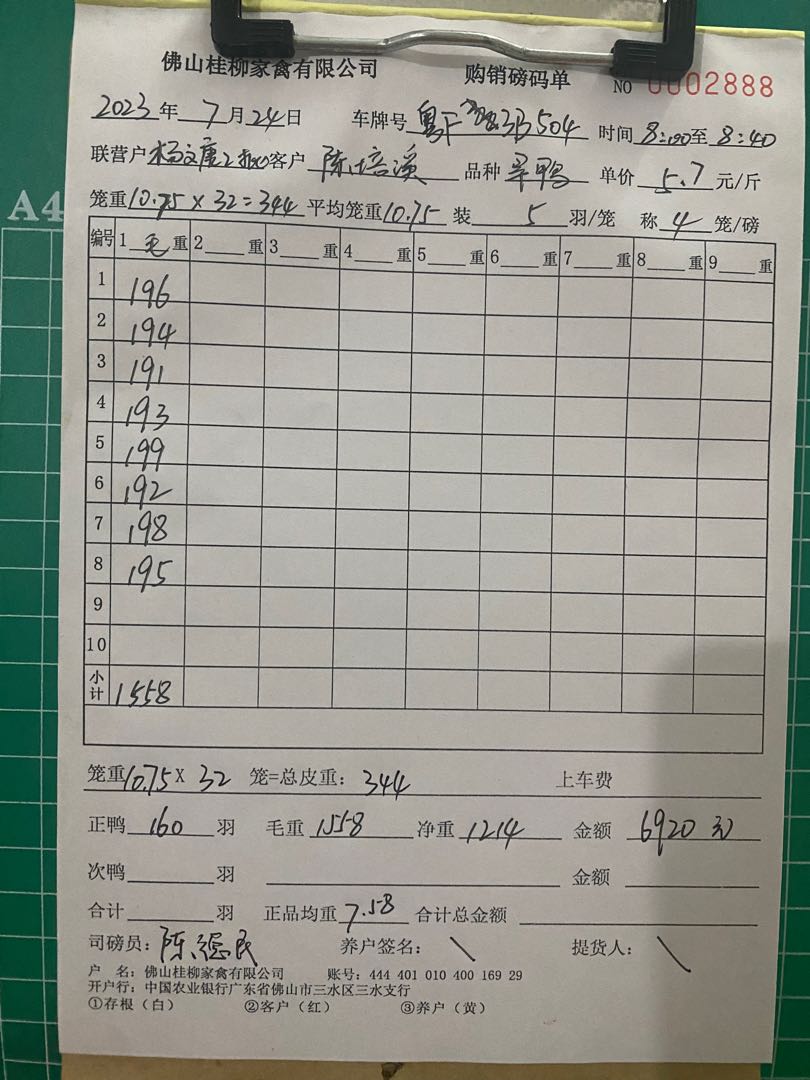 佛山桂柳家禽有限公司 购销磅码单 NO 0002888
2023年7月24日 车牌号 粤F 3B504 时间 8:00至8:40
联营户 杨文唐2 客户 陈培溪 品种 单价 5.7 元/斤
笼重10.75×32=344 平均笼重10.75 装 5 羽/笼 称 4 笼/磅
编号 1 毛 重 2 重 3 重 4 重 5 重 6 重 7 重 8 重 9 重
1 196
2 194
3 191
4 193
5 199
6 192
7 198
8 195
9
10
小计 1558
笼重10.75× 32 笼=总皮重: 344 上车费
正鸭 160 羽 毛重 1558 净重 1214 金额 6920元
次鸭 羽 金额
合计 羽 正品均重 7.58 合计总金额
司磅员: 陈德民 养户签名: \ 提货人: \
户 名: 佛山桂柳家禽有限公司 账号: 444 401 010 400 169 29
开户行: 中国农业银行广东省佛山市三水区三水支行
①存根（白） ②客户（红） ③养户（黄）
A4